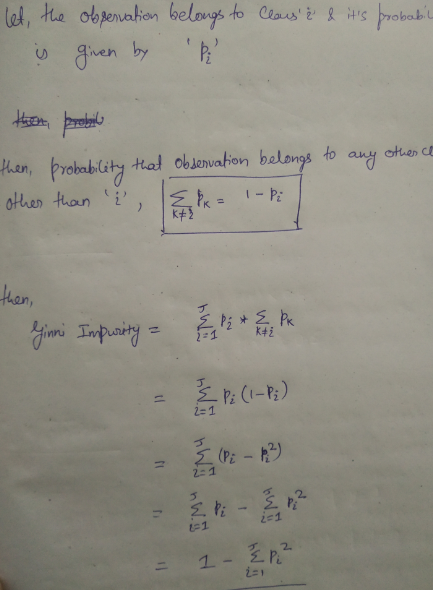 let, the observation belongs to Class 'i' & it's probabil
is given by 'pi'
then, probabi
then, probability that observation belongs to any other cl
other than 'i', ∑k≠i pk = 1 - pi
then,
Ginni Impurity = ∑i=1^J pi * ∑k≠i pk
= ∑i=1^J pi (1-pi)
= ∑i=1^J (pi - pi²)
= ∑i=1^J pi - ∑i=1^J pi²
= 1 - ∑i=1^J pi²